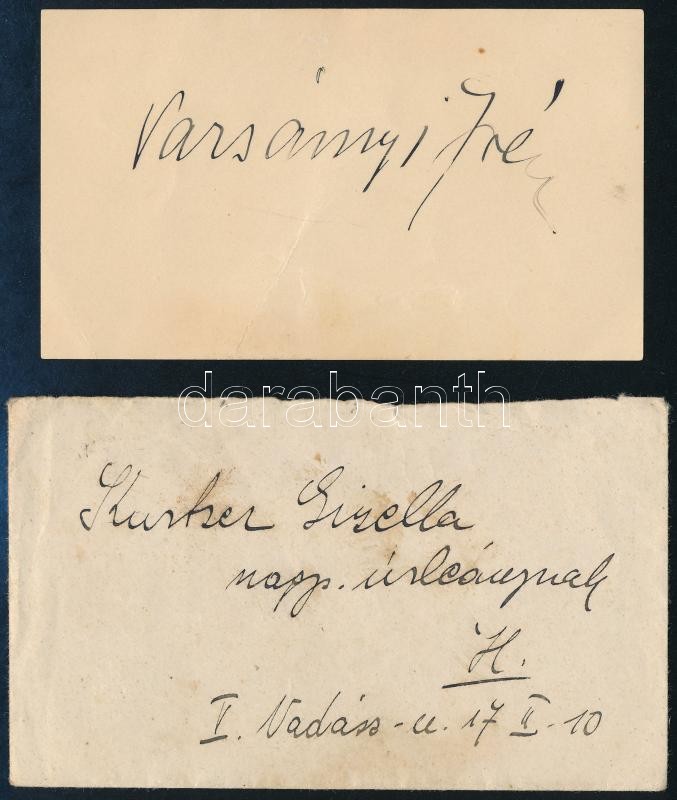 Varsányi Irén
darabanth
Kurtzer Gizella
nagys. úrleánynak
H.
V. Vadász-u. 17 II-10